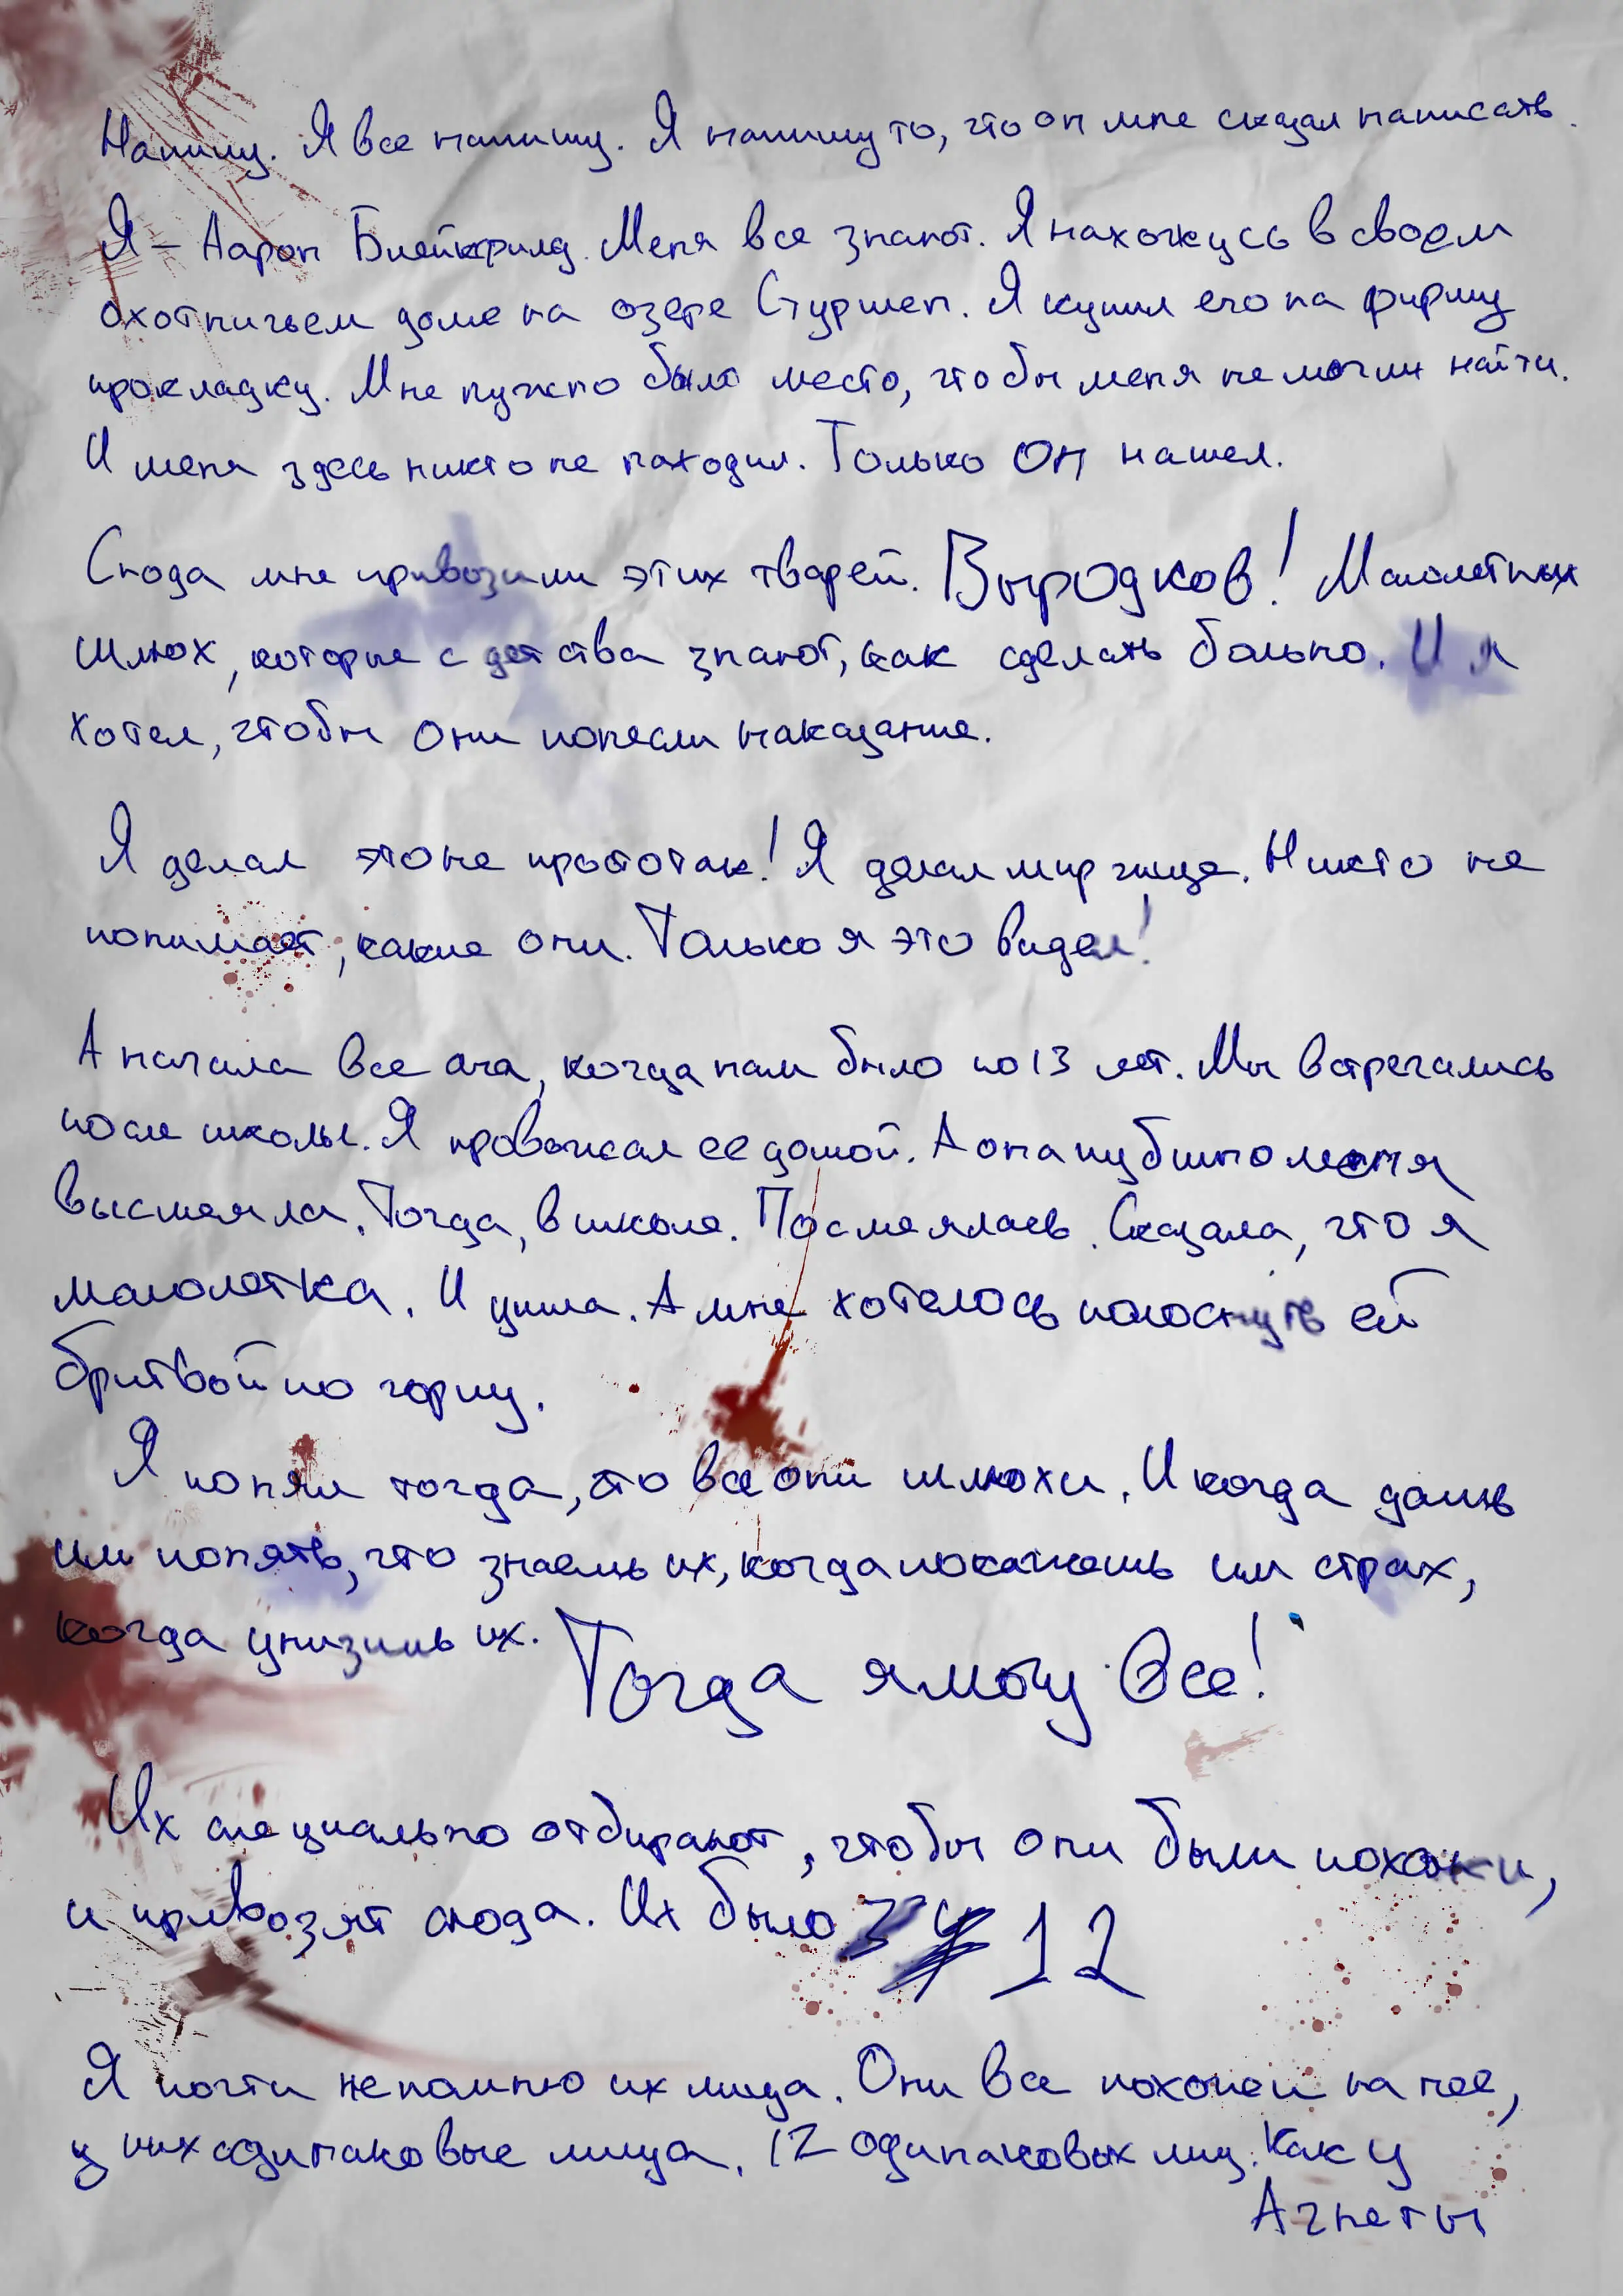 Напишу. Я все напишу. Я напишу то, что он мне сказал написать.
Я – Аарон Блейкфилд. Меня все знают. Я нахожусь в своем
охотничьем доме на озере Стуршен. Я купил его на фирму
прокладку. Мне нужно было место, чтобы меня не могли найти.
И меня здесь никто не находил. Только ОН нашел.
Сюда мне привозили этих тварей. Выродков! Малолетних
шлюх, которые с детства знают, как сделать больно. И я
хотел, чтобы они понесли наказание.
Я делал это не просто так! Я делал мир чище. Никто не
понимает, какие они. Только я это видел!
А начала все она, когда нам было по 13 лет. Мы встречались
после школы. Я провожал ее домой. А она публично меня
высмеяла. Тогда, в школе. Посмеялась. Сказала, что я
малолетка. И ушла. А мне хотелось полоснуть ей
бритвой по горлу.
Я понял тогда, что все они шлюхи. И когда даешь
им понять, что знаешь их, когда покажешь им страх,
когда унизишь их. Тогда я могу все!
Их специально отбирают, чтобы они были похожи,
и привозят сюда. Их было 12
Я почти не помню их лица. Они все похожи на нее,
у них одинаковые лица. 12 одинаковых лиц. Как у
Агнеты